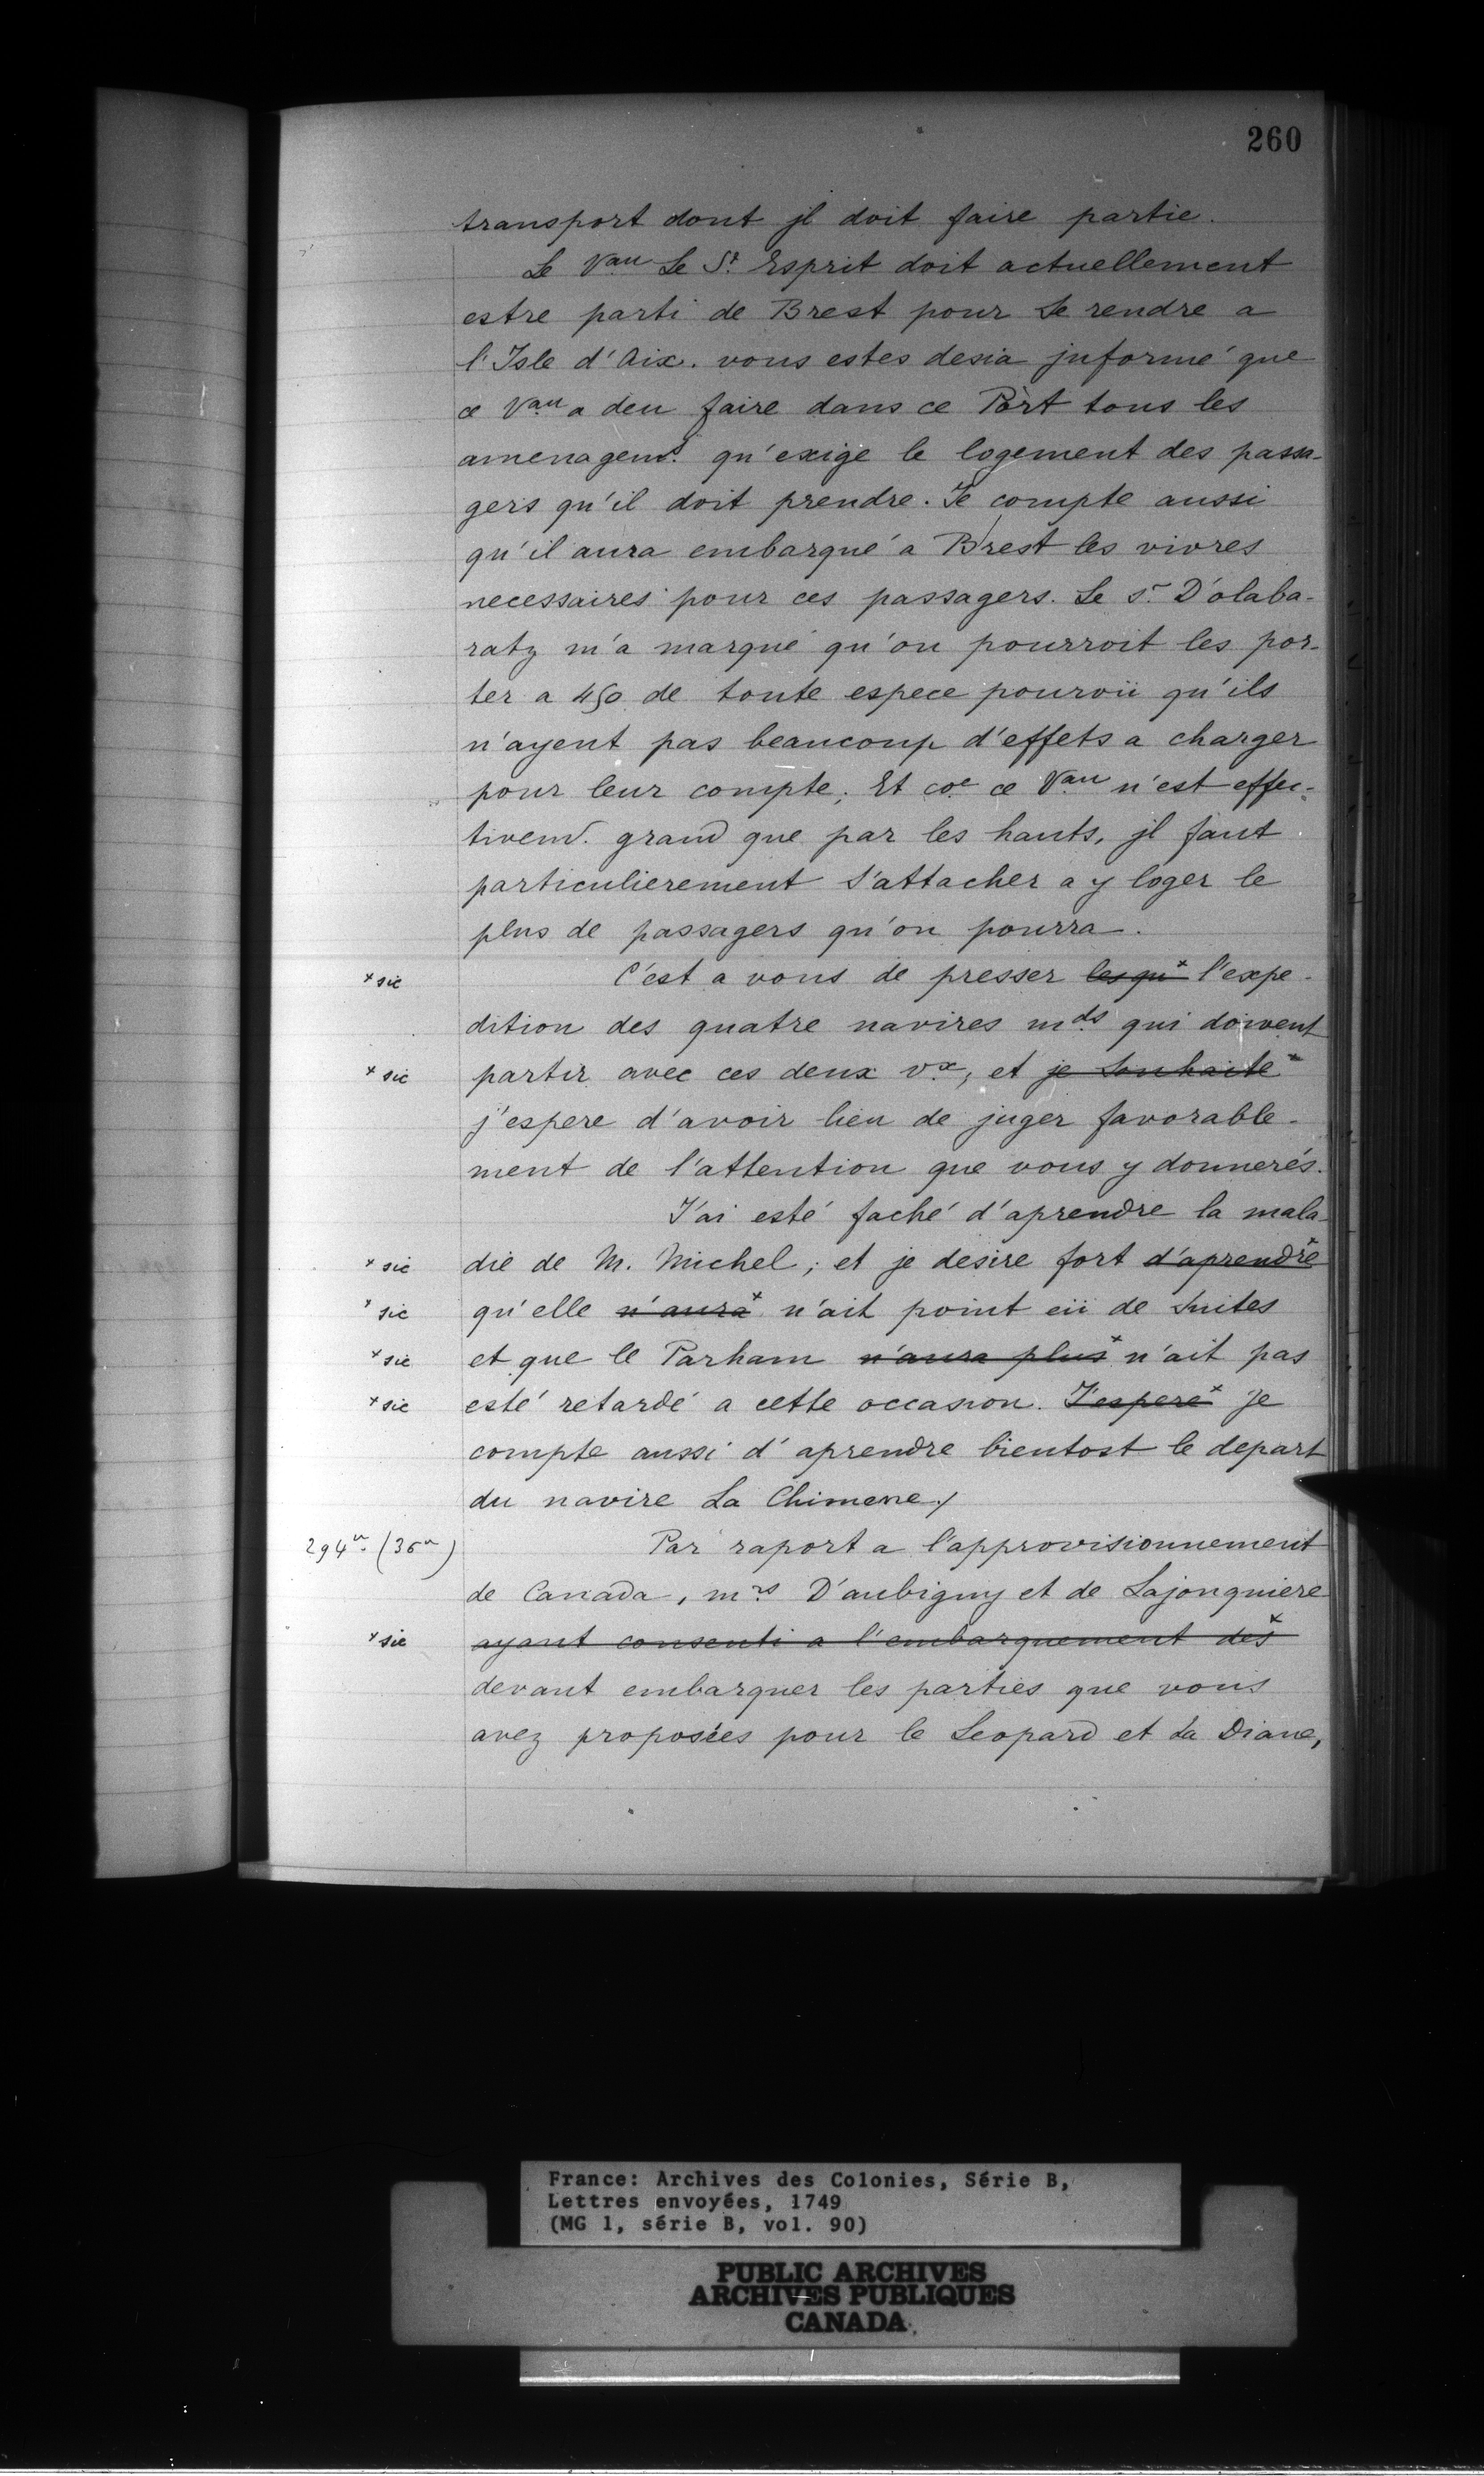 260
transport dont jl doit faire partie.
Le Vau Le St. Esprit doit actuellement
estre parti de Brest pour Se rendre a
l'Isle d'Aix. vous estes desia jnformé que
ce Vau a deu faire dans ce Port tous les
amenagemts. qu'exige le logement des passa-
gers qu'il doit prendre. Je compte aussi
qu'il aura embarqué a Brest les vivres
necessaires pour ces passagers. Le sr. D'olaba-
ratz m'a marqué qu'on pourroit les por-
ter a 450 de toute espece pourvü qu'ils
n'ayent pas beaucoup d'effets a charger
pour leur compte; Et coe ce Vau n'est effec-
tivemt. grand que par les hauts, jl faut
particulierement S'attacher a y loger le
plus de passagers qu'on pourra.
x sic C'est a vous de presser les qu x l'expe-
dition des quatre navires mds qui doivent
x sic partir avec ces deux vx, et je Souhaite x
j'espere d'avoir lieu de juger favorable-
ment de l'attention que vous y donnerés.
J'ai esté faché d'aprendre la mala-
x sic die de M. Michel; et je desire fort d'aprendre x
x sic qu'elle n'aura x n'ait point eü de Suites
x sic et que le Parham n'aura plus x n'ait pas
x sic esté retardé a cette occasion. J'espere x Je
compte aussi d'aprendre bientost le depart
du navire La Chimene /
294 vo. (36 vo) Par raport a l'approvisionnement
de Canada, mrs D'aubigny et de Lajonquiere
x sic ayant consenti a l'embarquement des x
devant embarquer les parties que vous
avez proposées pour le Leopard et La Diane,
France: Archives des Colonies, Série B,
Lettres envoyées, 1749
(MG 1, série B, vol. 90)
PUBLIC ARCHIVES
ARCHIVES PUBLIQUES
CANADA